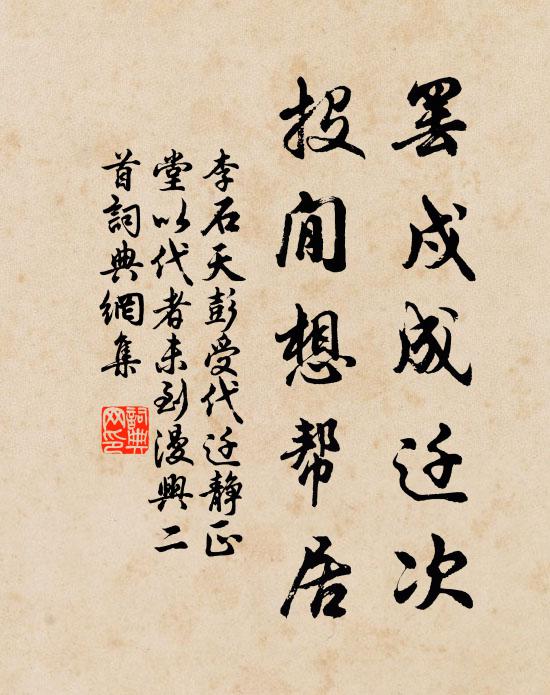 罢戍成迁次
投闲想帮居
李石天彭受代迁静正
堂以代者未到漫興二
首詞典網集
詞典
网印